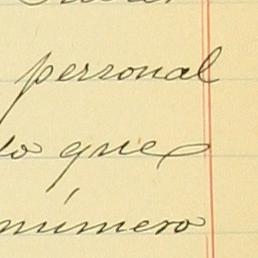 personal
lo que
número